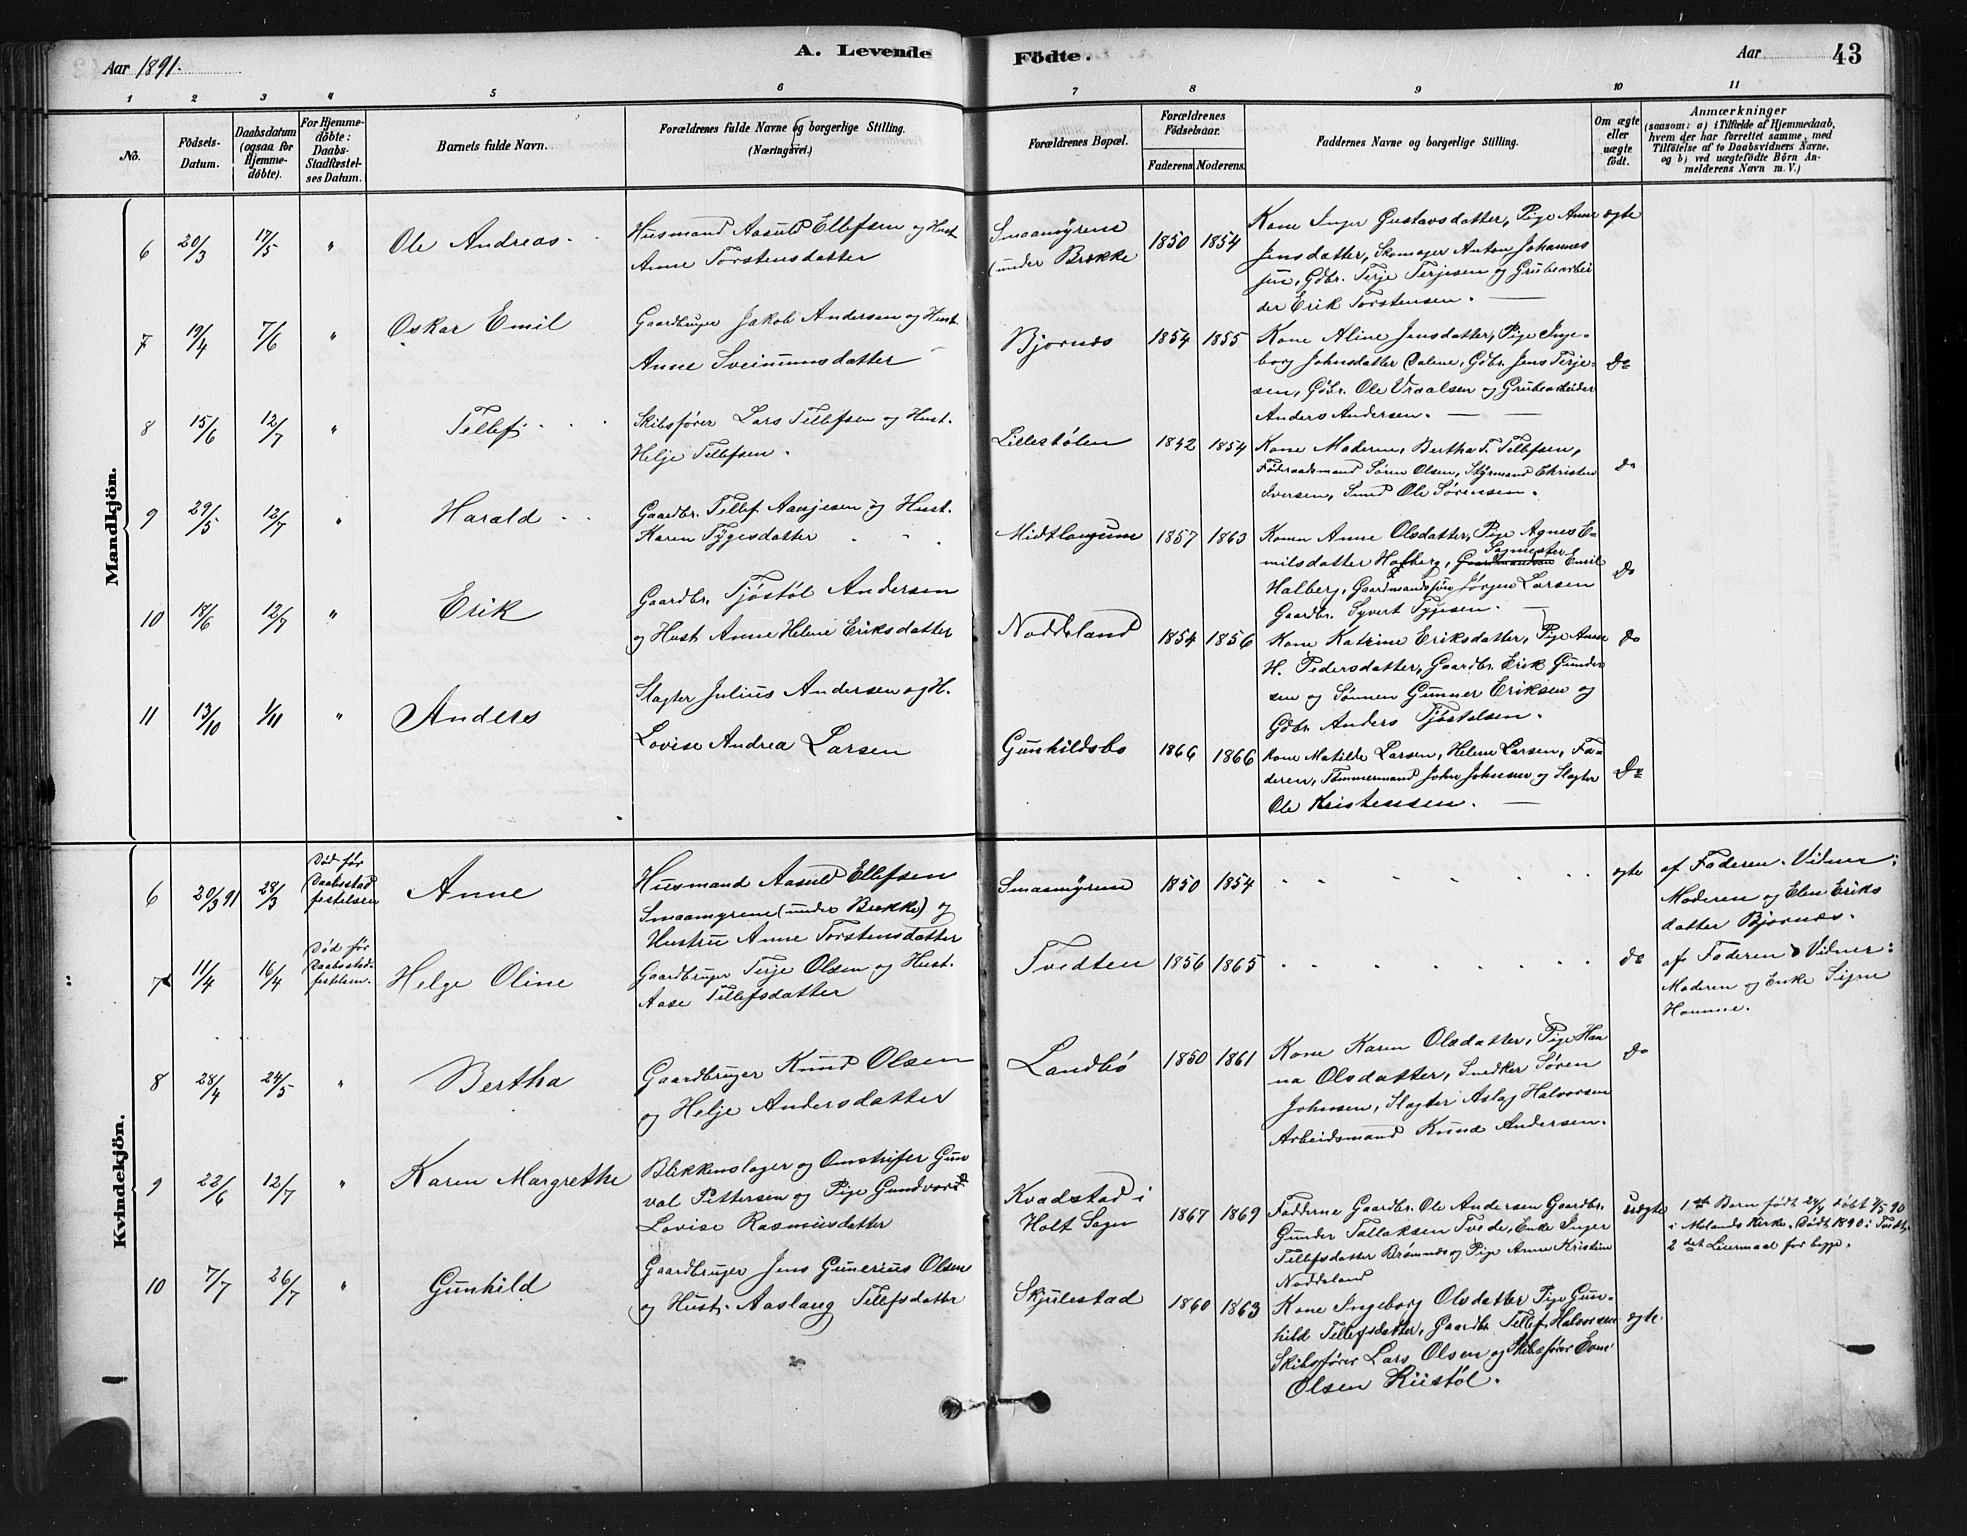 Aar 1891.
A. Levende
Födte.
Aar
43
1 2 3 4 5 6 7 8 9 10 11
No.
Födsels-Datum.
Daabsdatum (ogsaa for Hjemmedöbte).
For Hjemmedöbte: Daabs-Stadfæstelses Datum.
Barnets fulde Navn.
Forældrenes fulde Navne og borgerlige Stilling. (Næringsvei.)
Forældrenes Bopæl.
Forældrenes Födselsaar.
Faderens Moderens.
Faddernes Navne og borgerlige Stilling.
Om ægte eller uægte födt.
Anmærkninger
(saasom: a) i Tilfælde af Hjemmedaab,
hvem der har forrettet samme, med
Tilföielse af to Daabsvidners Navne,
og b) ved uægtefödte Börn An-
melderens Navn m. V.)
Mandkjön.
6 20/3 17/5 " Ole Andreas
Husmand Aasuld Ellefsen og Hust.
Anne Torstensdatter
Smaamyrene
(under Brække
1850 1854
Kone Inger Gustavsdatter, Pige Anne
Jensdatter, Skomager Anton Johannes
sen, Gdbr. Terje Terjesen og Grubearbei
der Erik Torstensen.
ægte
7 19/4 7/6 " Oskar Emil
Gaardbruger Jakob Andersen og Hust.
Anne Sveinumsdatter
Bjornæs
1854 1855
Kone Aline Jensdatter, Pige Inge-
borg Johnsdatter Dalene, Gdbr. Jens Terje-
sen, Gdbr. Ole Vraalsen og Grubearbeider
Anders Andersen.
Do
8 15/6 12/7 " Tellef
Skibsfører Lars Tellefsen og Hust.
Helje Tellefsen.
Lillestølen
1842 1854
Kone Moderen, Bertha T. Tellefsen,
Føderaadsmand Søren Olsen, Styrmand Christen
Iversen, Smed Ole Sørensen.
do
9 29/5 12/7 " Harald
Gaardbr. Tellef Aasjesen og Hust.
Karen Tygesdatter
Midtlangum
1857 1863
Konen Anne Olsdatter, Pige Agnes E-
milsdatter Hafberg, Sagmester Emil
Halberg, Gaardmandsføn Jørgen Larsen
Gaardbr. Syvert Tygesen.
Do
10 18/6 12/7 " Erik
Gaardbr. Tjøstøl Andersen
og Hust. Anne Helene Eriksdatter
Noddeland
1854 1856
Kone Katrine Eriksdatter, Pige Anne
H. Pedersdatter, Gaardbr. Erik Gunder
sen og Sønnen Gunner Eriksen og
Gdbr. Anders Tjøstelsen.
do
11 13/10 1/11 " Anders
Slagter Julius Andersen og H.
Lovise Andrea Larsen
Gunhildsbo
1866 1866
Kone Matilde Larsen, Helene Larsen, Fa-
deren, Tømmermand John Johnsen og Slagter
Ole Kristensen.
Do
Kvindekjön.
6 20/3 91 28/3
Død før
Daabsstad
festelsen
Anne
Husmand Aasuld Ellefsen
Smaamyrene (under Brække) og
Hustru Anne Torstensdatter
Smaamyrene
1850 1854
ægte
af Faderen. Vidner:
Moderen og Elen Eriks
datter Bjornæs.
7 11/4 16/4
Død før
Daabsstad-
festelsen.
Helge Oline
Gaardbruger Terje Olsen og Hust.
Aase Tellefsdatter
Tvedten
1856 1865
do
af Faderen. Vidner:
Moderen og Enke Signe
Homme.
8 28/4 24/5 " Bertha
Gaardbruger Knud Olsen
og Helje Andersdatter
Landbö
1850 1861
Kone Karen Olsdatter, Pige Han
na Olsdatter, Snedker Søren
Johnsen, Slagter Aslag Halvorsen
Arbeidsmand Knud Andersen.
do
9 22/6 12/7 " Karen Margrethe
Blikkenslager og Omstrifer Gun
val Pettersen og Pige Gundvor
Lovise Rasmusdatter
Kvadstad i
Holt Sogn
1867 1869
Fadderne Gaardbr. Ole Andersen Gaardbr.
Gunder Tallaksen Tvede, Enke Inger
Tellefsdatter Brømnes og Pige Anne Kristine
Noddeland
uægte
1ste Barn født 24/4 døbt 4/5 90
i Molands Kirke. Død 1890 i Tvedt.
2det Leiermaal for begge.
10 7/7 26/7 " Gunhild
Gaardbruger Jens Gunerius Olsen
og Hust. Aaslaug Tellefsdatter
Skjulestad
1860 1863
Kone Ingeborg Olsdatter Pige Gun-
hild Tellefsdatter, Gaardbr. Tellef Halvorsen
Skibsfører Lars Olsen og Skibsfører Even
Olsen Riistöl.
ægte.